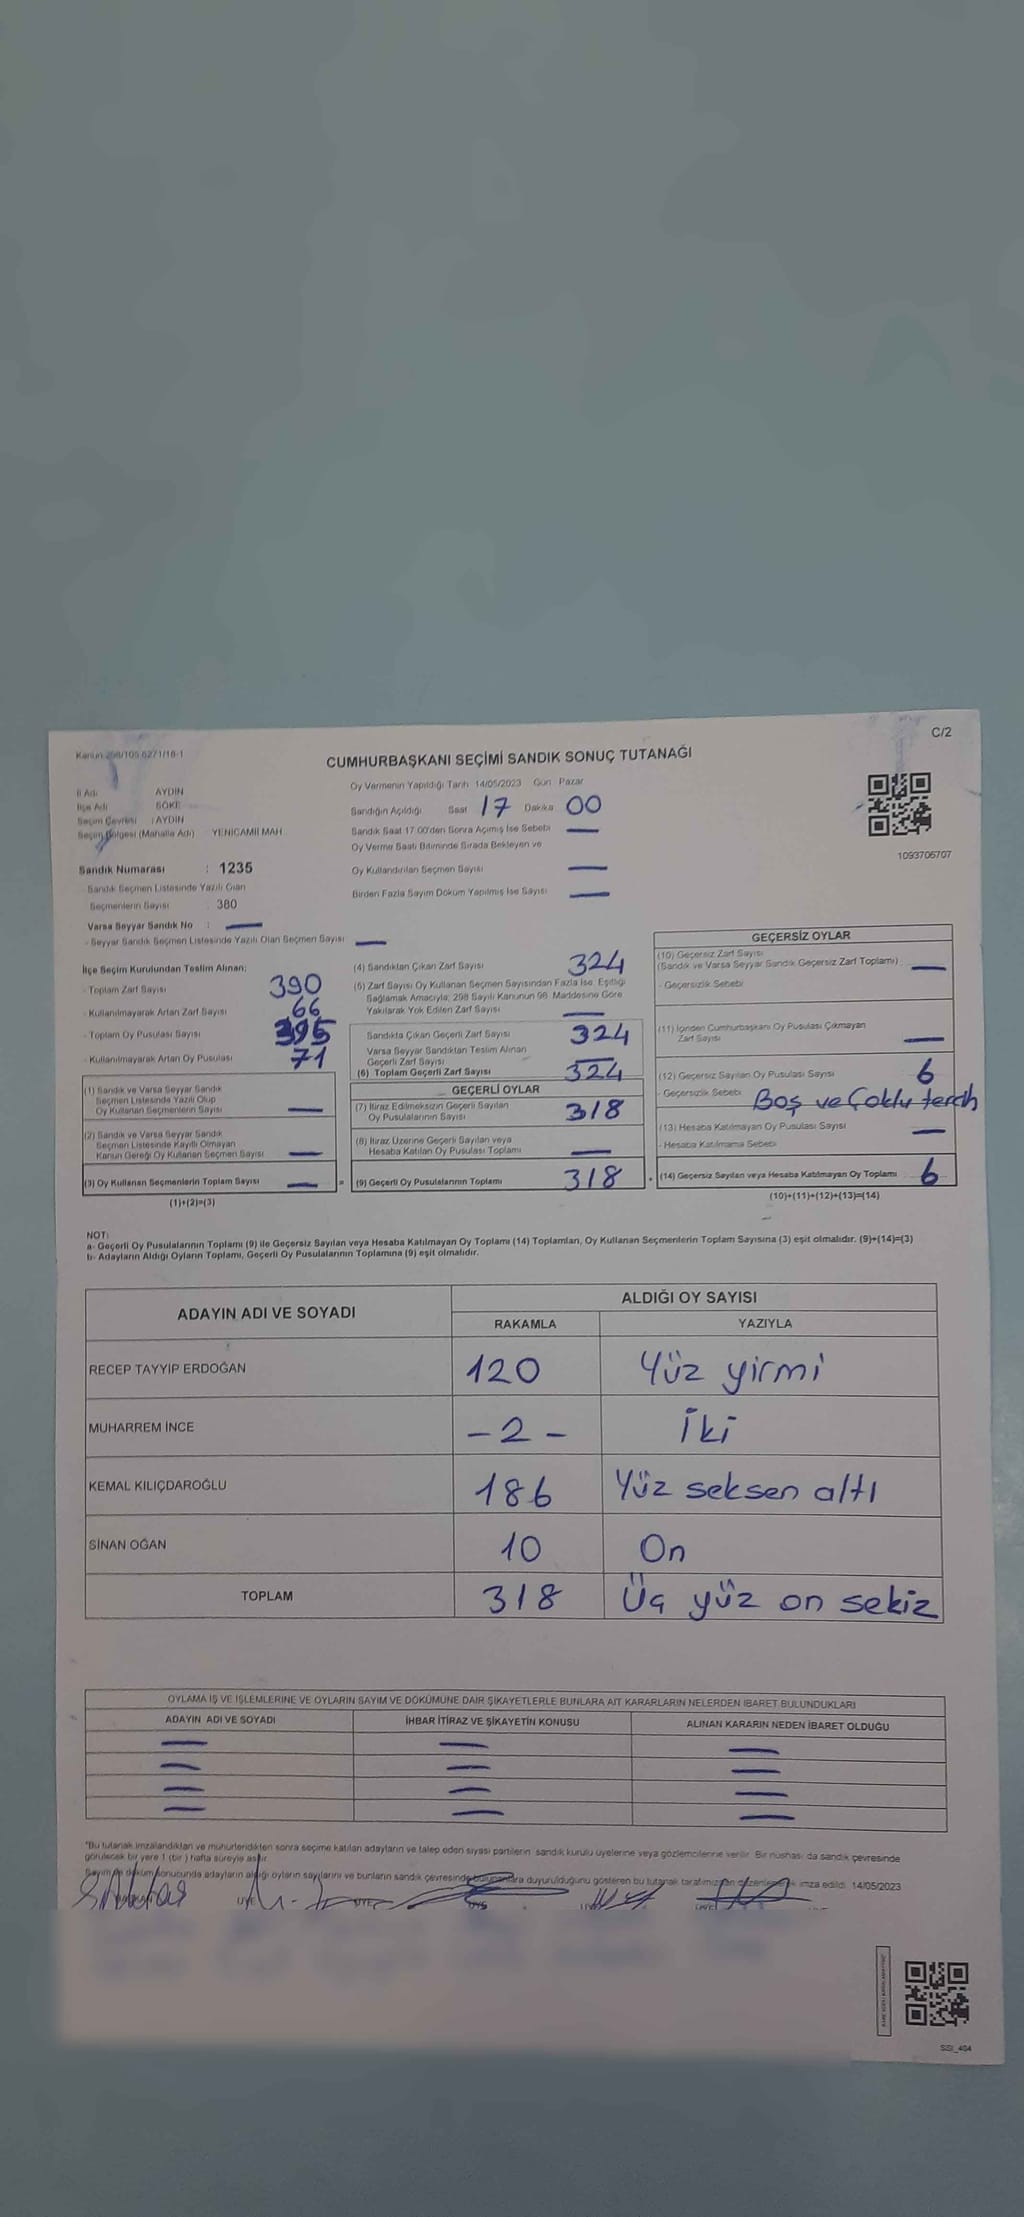 C/2
Kanun 298/105 6271/18-1
CUMHURBAŞKANI SEÇİMİ SANDIK SONUÇ TUTANAĞI
İl Adı AYDIN
İlçe Adı SÖKE
Seçim Çevresi : AYDIN
Seçim Bölgesi (Mahalle Adı) YENİCAMİİ MAH
Sandık Numarası : 1235
Sandık Seçmen Listesinde Yazılı Olan
Seçmenlerin Sayısı : 380
Varsa Seyyar Sandık No : —
- Seyyar Sandık Seçmen Listesinde Yazılı Olan Seçmen Sayısı —
Oy Vermenin Yapıldığı Tarih 14/05/2023 Gün Pazar
Sandığın Açıldığı Saat 17 Dakika 00
Sandık Saat 17.00'den Sonra Açımış İse Sebebi —
Oy Verme Saati Bitiminde Sırada Bekleyen ve
Oy Kullandırılan Seçmen Sayısı —
Birden Fazla Sayım Döküm Yapılmış İse Sayısı —
1093706707
İlçe Seçim Kurulundan Teslim Alınan:
- Toplam Zarf Sayısı 390
- Kullanılmayarak Artan Zarf Sayısı 66
- Toplam Oy Pusulası Sayısı 395
- Kullanılmayarak Artan Oy Pusulası 71
(1) Sandık ve Varsa Seyyar Sandık
Seçmen Listesinde Yazılı Olup
Oy Kullanan Seçmenlerin Sayısı —
(2) Sandık ve Varsa Seyyar Sandık
Seçmen Listesinde Kayıtlı Olmayan
Kanun Gereği Oy Kullanan Seçmen Sayısı —
(3) Oy Kullanan Seçmenlerin Toplam Sayısı —
(1)+(2)=(3)
(4) Sandıktan Çıkan Zarf Sayısı 324
(5) Zarf Sayısı Oy Kullanan Seçmen Sayısından Fazla İse, Eşitliği
Sağlamak Amacıyla, 298 Sayılı Kanunun 98. Maddesine Göre
Yakılarak Yok Edilen Zarf Sayısı —
Sandıkta Çıkan Geçerli Zarf Sayısı 324
Varsa Seyyar Sandıktan Teslim Alınan
Geçerli Zarf Sayısı —
(6) Toplam Geçerli Zarf Sayısı 324
GEÇERLİ OYLAR
(7) İtiraz Edilmeksizin Geçerli Sayılan
Oy Pusulalarının Sayısı 318
(8) İtiraz Üzerine Geçerli Sayılan veya
Hesaba Katılan Oy Pusulası Toplamı —
(9) Geçerli Oy Pusulalarının Toplamı 318
GEÇERSİZ OYLAR
(10) Geçersiz Zarf Sayısı
(Sandık ve Varsa Seyyar Sandık Geçersiz Zarf Toplamı) —
- Geçersizlik Sebebi
(11) İçinden Cumhurbaşkanı Oy Pusulası Çıkmayan
Zarf Sayısı —
(12) Geçersiz Sayılan Oy Pusulası Sayısı 6
- Geçersizlik Sebebi Boş ve Çoklu tercih
(13) Hesaba Katılmayan Oy Pusulası Sayısı —
- Hesaba Katılmama Sebebi
(14) Geçersiz Sayılan veya Hesaba Katılmayan Oy Toplamı 6
(10)+(11)+(12)+(13)=(14)
NOT:
a- Geçerli Oy Pusulalarının Toplamı (9) ile Geçersiz Sayılan veya Hesaba Katılmayan Oy Toplamı (14) Toplamları, Oy Kullanan Seçmenlerin Toplam Sayısına (3) eşit olmalıdır. (9)+(14)=(3)
b- Adayların Aldığı Oyların Toplamı, Geçerli Oy Pusulalarının Toplamına (9) eşit olmalıdır.
ADAYIN ADI VE SOYADI ALDIĞI OY SAYISI
RAKAMLA YAZIYLA
RECEP TAYYİP ERDOĞAN 120 Yüz yirmi
MUHARREM İNCE -2- İki
KEMAL KILIÇDAROĞLU 186 Yüz seksen altı
SİNAN OĞAN 10 On
TOPLAM 318 Üç yüz on sekiz
OYLAMA İŞ VE İŞLEMLERİNE VE OYLARIN SAYIM VE DÖKÜMÜNE DAİR ŞİKAYETLERLE BUNLARA AİT KARARLARIN NELERDEN İBARET BULUNDUKLARI
ADAYIN ADI VE SOYADI İHBAR İTİRAZ VE ŞİKAYETİN KONUSU ALINAN KARARIN NEDEN İBARET OLDUĞU
— — —
— — —
— — —
— — —
"Bu tutanak imzalandıktan ve mühürlendikten sonra seçime katılan adayların ve talep eden siyasi partilerin sandık kurulu üyelerine veya gözlemcilerine verilir. Bir nüshası da sandık çevresinde
görülecek bir yere 1 (bir) hafta süreyle asılır.
Sayım ve döküm sonucunda adayların aldığı oyların sayılarını ve bunların sandık çevresinde bulunanlara duyurulduğunu gösteren bu tutanak tarafımızdan düzenlenerek imza edildi. 14/05/2023
ÜYE ÜYE ÜYE
SSI_404